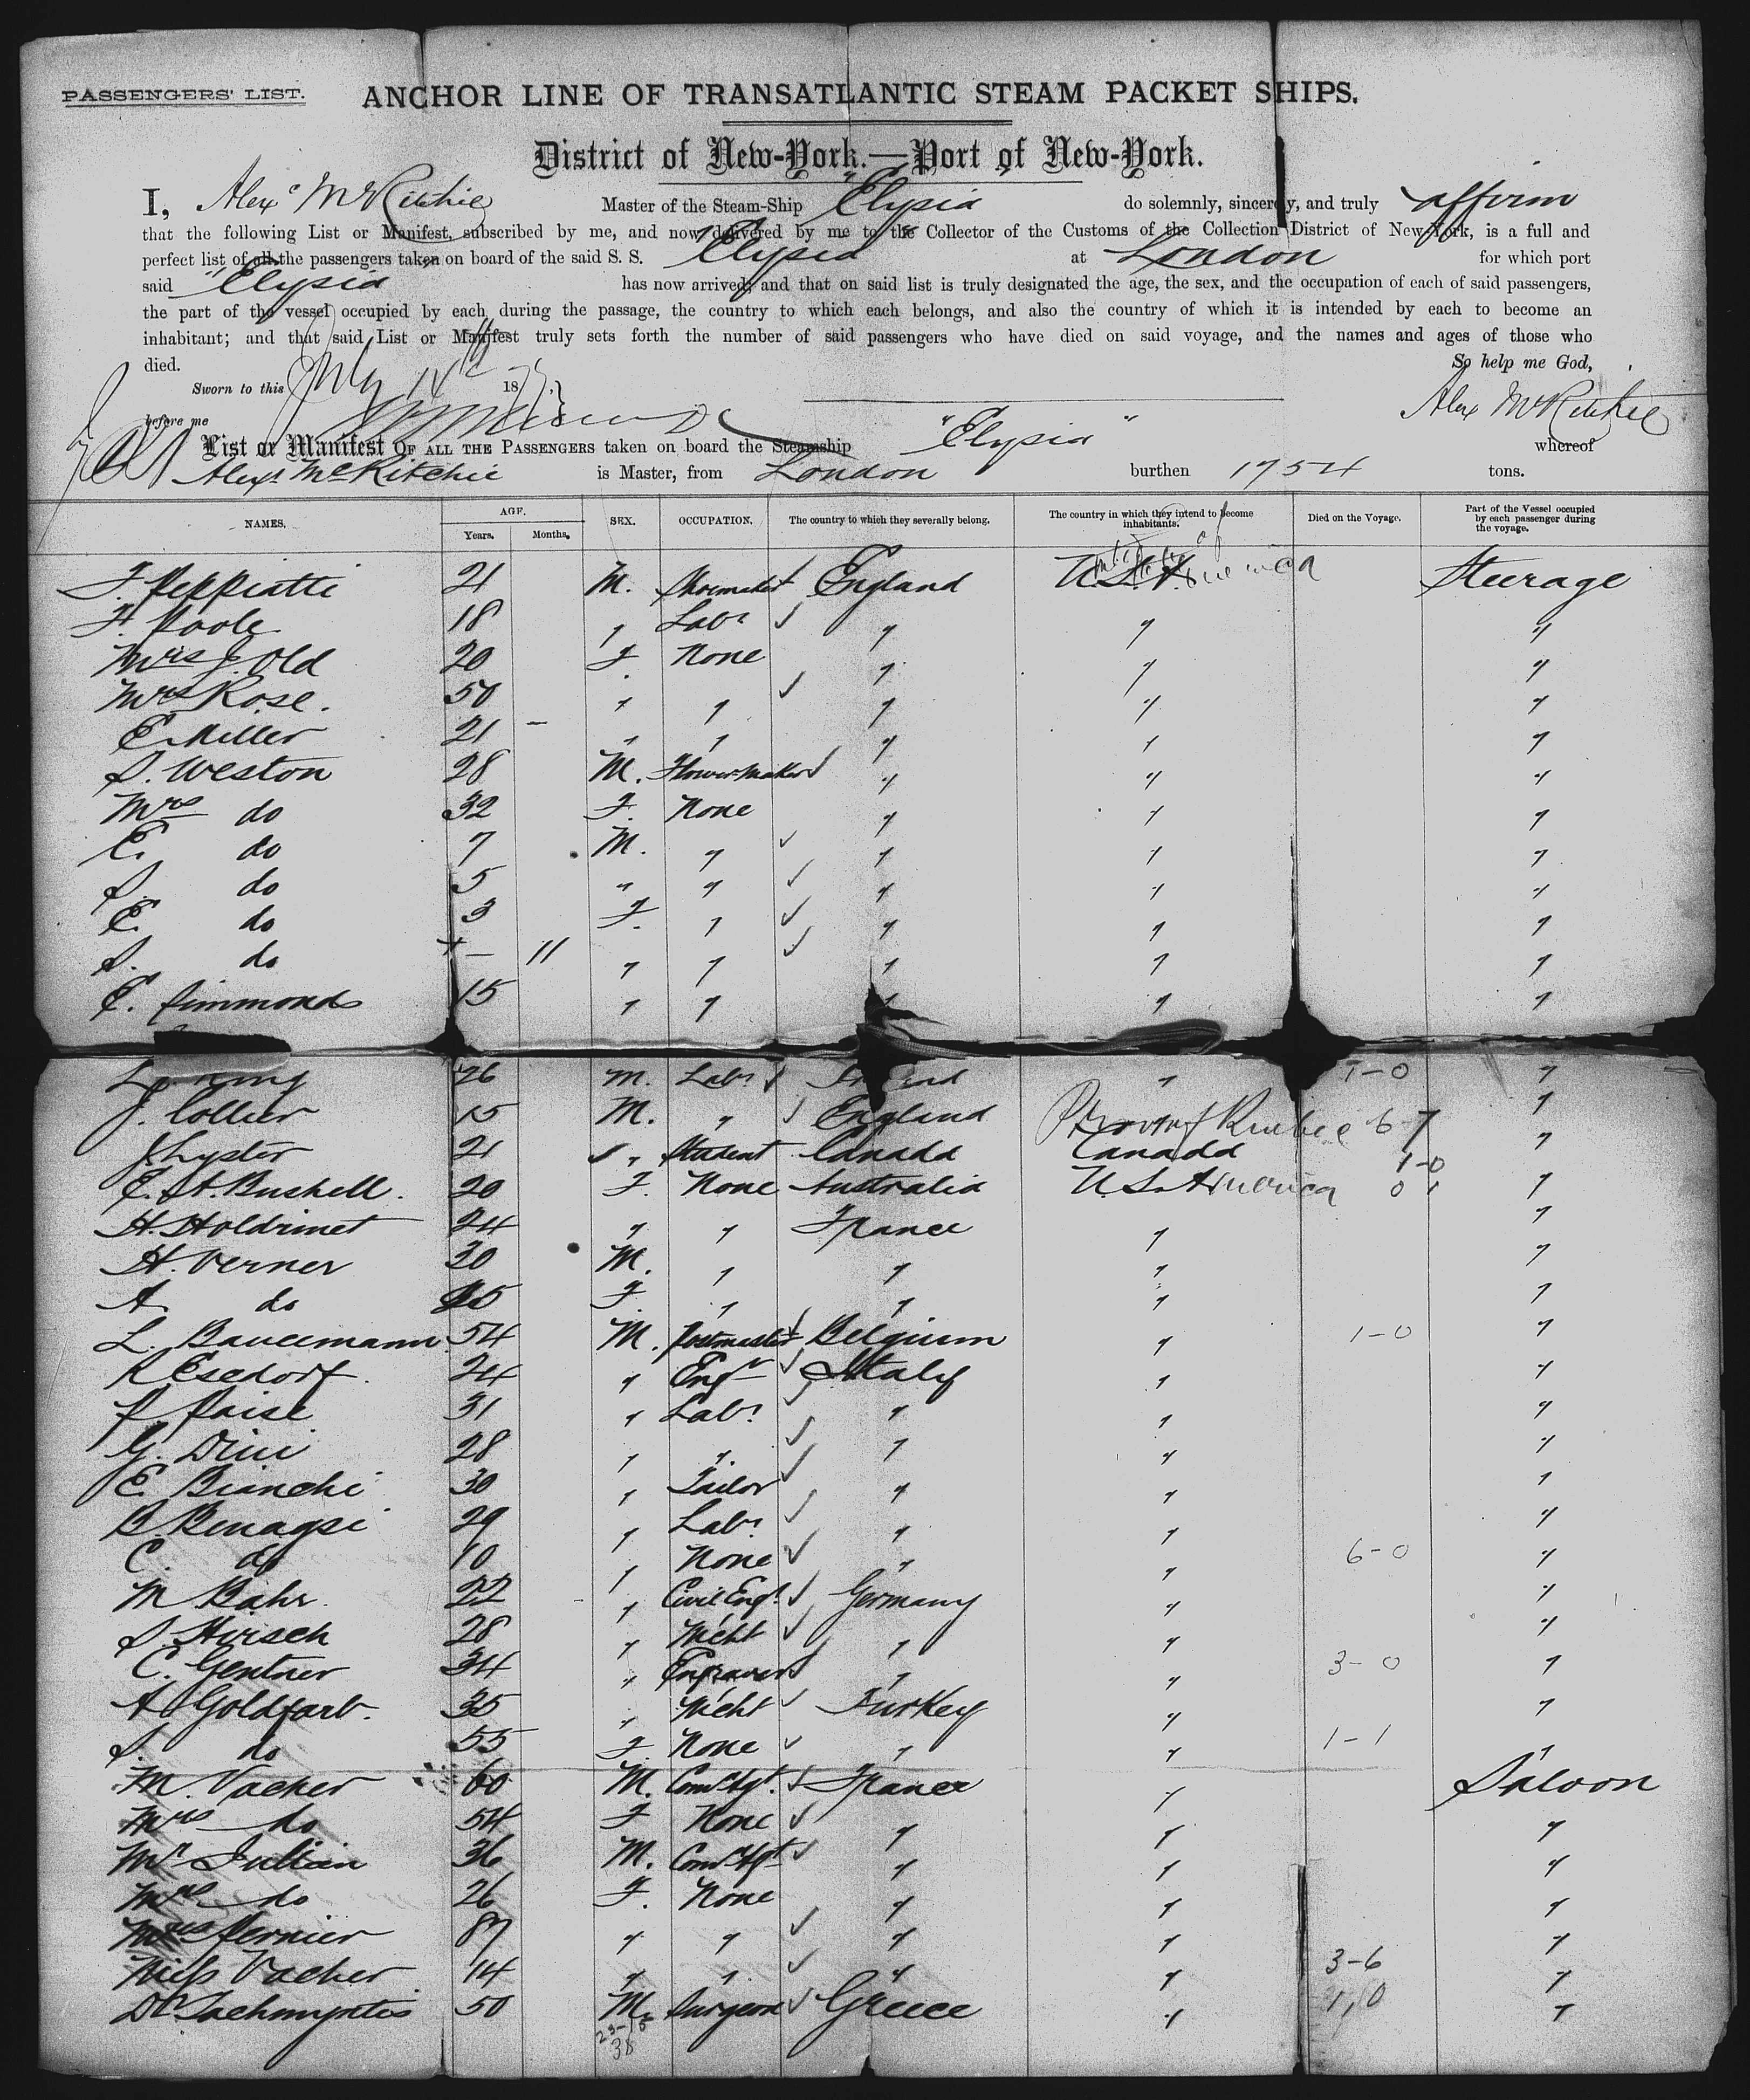 PASSENGERS' LIST. ANCHOR LINE OF TRANSATLANTIC STEAM PACKET SHIPS.
District of New-York.—Port of New-York.
I, Alexr McRitchie Master of the Steam-Ship "Elysia" do solemnly, sincerely, and truly affirm
that the following List or Manifest, subscribed by me, and now delivered by me to the Collector of the Customs of the Collection District of New-York, is a full and
perfect list of all the passengers taken on board of the said S. S. Elysia at London for which port
said "Elysia has now arrived; and that on said list is truly designated the age, the sex, and the occupation of each of said passengers,
the part of the vessel occupied by each during the passage, the country to which each belongs, and also the country of which it is intended by each to become an
inhabitant; and that said List or Manifest truly sets forth the number of said passengers who have died on said voyage, and the names and ages of those who
died. So help me God,
Sworn to this July 14th 187
before me Alex McRitchie
List or Manifest OF ALL THE PASSENGERS taken on board the Steamship "Elysia" whereof
Alexr McRitchie is Master, from London burthen 1754 tons.
NAMES. AGE. Years. Months. SEX. OCCUPATION. The country to which they severally belong. The country in which they intend to become inhabitants. Died on the Voyage. Part of the Vessel occupied by each passenger during the voyage.
J. Peppiatti 21 M. Shoemaker England U.S. America Steerage
F. Poole 18 " Labr " " "
Mrs J. Old 20 F None " " "
Mrs Rose. 50 " " " " "
E. Miller 21 - " " " " "
S. Weston 28 M. Flower Maker " " "
Mrs do 32 F. None " " "
E. do 7 M. " " " "
S. do 5 " " " " "
E. do 3 F. " " " "
S. do - 11 " " " " "
E. Simmonds 15 " " " " "
King 26 M. Labr " 1-0 "
J. Collier 15 M. " England "
J Lyster 21 " Student Canada Canada "
E. A. Bushell. 20 F. None Australia U.S. America 0 1 "
H. Holdrinet 24 " " France " "
H. Verner 30 M. " " " "
A. do 25 F. " " " "
L. Baucemann 54 M. Postmaster Belgium " 1-0 "
R Esedorf. 24 " Engr Italy " "
P Paise 31 " Labr " " "
G. Dini 28 " " " " "
E Bianchi 30 " Tailor " " "
B. Benagsi 29 " Labr " " "
C. do 10 " None " " 6-0 "
M Bahr. 22 " Civil Engr Germany " "
S. Hirsch 28 " Mcht " " "
C. Gentner 34 " Engraver " " 3-0 "
A Goldfarb. 35 " Mcht Turkey " "
S. do 55 F. None " " 1-1 "
M. Vacher 60 M. Comcl Agt. France " Saloon
Mrs do 54 F None " " "
Mr Jullian 36 M. Comcl Agt " " "
Mrs do 26 F. None " " "
Mrs Pernier 87 " " " " "
Miss Vacher 14 " " " " 3-6 "
Dr 50 M. Surgeon Greece " 1,0 "
38